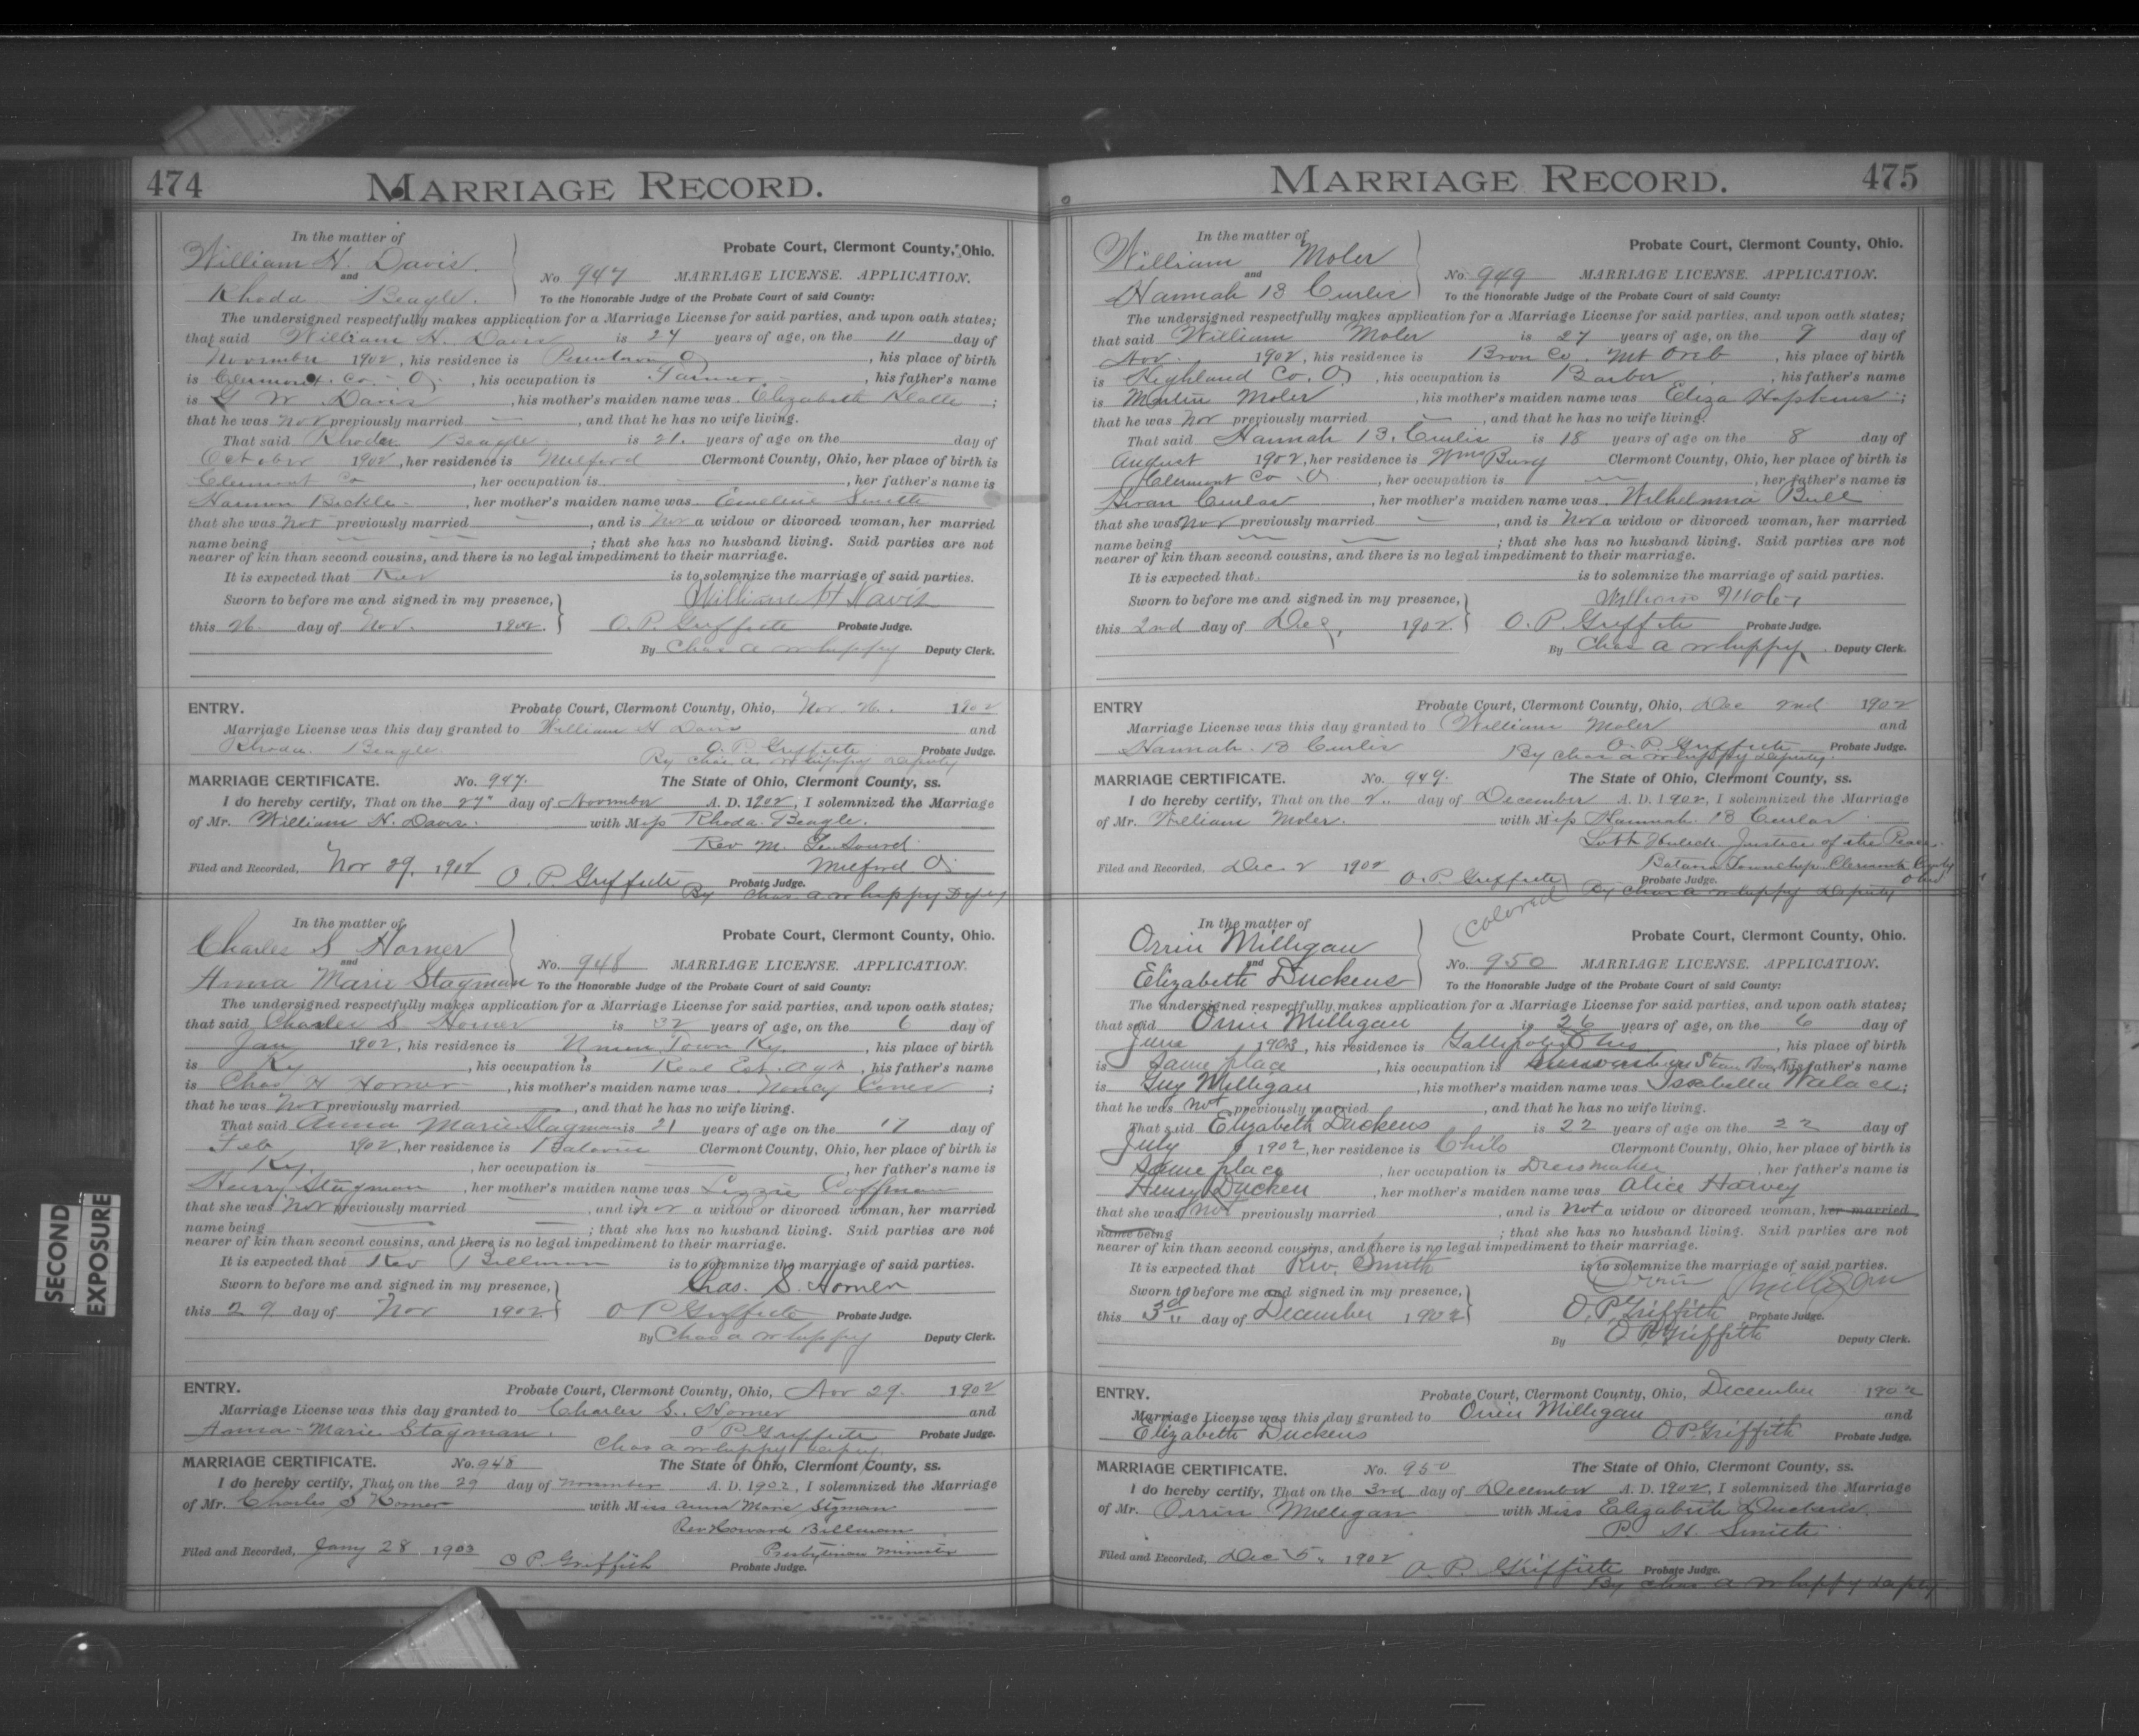 474
MARRIAGE RECORD.
In the matter of
William H. Davis.
and
Rhoda Beagle.
Probate Court, Clermont County, Ohio.
No. 947 MARRIAGE LICENSE. APPLICATION.
To the Honorable Judge of the Probate Court of said County:
The undersigned respectfully makes application for a Marriage License for said parties, and upon oath states;
that said William H. Davis is 24 years of age, on the 11 day of
November 1902, his residence is O, his place of birth
is Clermont Co. O, his occupation is Farmer, his father's name
is G W Davis, his mother's maiden name was Elizabeth;
that he was not previously married —, and that he has no wife living.
That said Rhoda Beagle is 21. years of age on the day of
October 1902, her residence is Milford Clermont County, Ohio, her place of birth is
Clermont Co, her occupation is —, her father's name is
Harmon, her mother's maiden name was Emeline Smith
that she was not previously married —, and is not a widow or divorced woman, her married
name being — —; that she has no husband living. Said parties are not
nearer of kin than second cousins, and there is no legal impediment to their marriage.
It is expected that Rev is to solemnize the marriage of said parties.
Sworn to before me and signed in my presence, William H Davis
this 26. day of Nov. 1902. O. P. Griffith Probate Judge.
By Chas a whuppy Deputy Clerk.
ENTRY. Probate Court, Clermont County, Ohio, Nov. 26. 1902
Marriage License was this day granted to William H Davis and
Rhoda Beagle O. P. Griffith Probate Judge.
By Chas a whuppy Deputy
MARRIAGE CERTIFICATE. No. 947. The State of Ohio, Clermont County, ss.
I do hereby certify, That on the 27" day of November A. D. 1902, I solemnized the Marriage
of Mr. William H. Davis. with Miss Rhoda Beagle.
Rev M.
Milford O.
Filed and Recorded, Nov 29, 1902 O. P. Griffith Probate Judge.
By Chas. a. whuppy Dpty
In the matter of
Charles S Horner
and
Anna Marie Stagman
Probate Court, Clermont County, Ohio.
No. 948 MARRIAGE LICENSE. APPLICATION.
To the Honorable Judge of the Probate Court of said County:
The undersigned respectfully makes application for a Marriage License for said parties, and upon oath states;
that said Charles S Horner is 32 years of age, on the 6 day of
Jan 1902, his residence is Union Town Ky., his place of birth
is Ky, his occupation is Real Est. Agt, his father's name
is Chas H Horner, his mother's maiden name was Nancy;
that he was Not previously married, and that he has no wife living.
That said Anna Marie Stagman is 21 years of age on the 17 day of
Feb 1902, her residence is Batavia Clermont County, Ohio, her place of birth is
Ky., her occupation is —, her father's name is
Henry Stagman, her mother's maiden name was Lizzie Coffman
that she was not previously married —, and is not a widow or divorced woman, her married
name being — —; that she has no husband living. Said parties are not
nearer of kin than second cousins, and there is no legal impediment to their marriage.
It is expected that Rev Billman is to solemnize the marriage of said parties.
Sworn to before me and signed in my presence, Chas. S. Horner
this 29 day of Nov 1902. O P Griffith Probate Judge.
By Chas a whuppy Deputy Clerk.
ENTRY. Probate Court, Clermont County, Ohio, Nov 29. 1902
Marriage License was this day granted to Charles S. Horner and
Anna Marie Stagman. O P Griffith Probate Judge.
Chas a whuppy Deputy.
MARRIAGE CERTIFICATE. No. 948 The State of Ohio, Clermont County, ss.
I do hereby certify, That on the 29 day of November A. D. 1902, I solemnized the Marriage
of Mr. Charles S Horner with Miss Anna Marie Stgman
Rev Howard Billman
Presbyterian minister
Filed and Recorded, Jany 28 1903 O P Griffith Probate Judge.
MARRIAGE RECORD.
475
In the matter of
William Moler
and
Hannah B Curlis
Probate Court, Clermont County, Ohio.
No. 949 MARRIAGE LICENSE. APPLICATION.
To the Honorable Judge of the Probate Court of said County:
The undersigned respectfully makes application for a Marriage License for said parties, and upon oath states;
that said William Moler is 27 years of age, on the 9 day of
Nov. 1902, his residence is Bron Co. Mt Oreb, his place of birth
is Highland Co. O, his occupation is Barber, his father's name
is Moler, his mother's maiden name was Eliza Hopkins;
that he was Not previously married —, and that he has no wife living.
That said Hannah B. Curlis is 18 years of age on the 8 day of
August 1902, her residence is Wmsburg Clermont County, Ohio, her place of birth is
Clermont Co. O, her occupation is —, her father's name is
Curlis, her mother's maiden name was Wilhelmina Bull
that she was Not previously married —, and is Not a widow or divorced woman, her married
name being — —; that she has no husband living. Said parties are not
nearer of kin than second cousins, and there is no legal impediment to their marriage.
It is expected that is to solemnize the marriage of said parties.
Sworn to before me and signed in my presence, William Moler
this 2nd day of Dec, 1902. O. P. Griffith Probate Judge.
By Chas a whuppy Deputy Clerk.
ENTRY Probate Court, Clermont County, Ohio, Dec 2nd 1902
Marriage License was this day granted to William Moler and
Hannah B Curlis O. P. Griffith Probate Judge.
By Chas a whuppy Deputy.
MARRIAGE CERTIFICATE. No. 949. The State of Ohio, Clermont County, ss.
I do hereby certify, That on the 2.. day of December A. D. 1902, I solemnized the Marriage
of Mr. William Moler. with Miss Hannah B Curlis
Justice of the Peace
Batavia Township Clermont County
Ohio
Filed and Recorded, Dec. 2 1902 O. P. Griffith Probate Judge.
By Chas a whuppy Deputy
(Colored
In the matter of
Orrin Milligan
and
Elizabeth Duckens
Probate Court, Clermont County, Ohio.
No. 950 MARRIAGE LICENSE. APPLICATION.
To the Honorable Judge of the Probate Court of said County:
The undersigned respectfully makes application for a Marriage License for said parties, and upon oath states;
that said Orrin Milligan is 26 years of age, on the 6 day of
June 1903, his residence is Gallipolis Ohio, his place of birth
is Same place, his occupation is Steam Boat, his father's name
is Guy Milligan, his mother's maiden name was Isabella Walace;
that he was not previously married, and that he has no wife living.
That said Elizabeth Duckens is 22 years of age on the 22 day of
July 1902, her residence is Chilo Clermont County, Ohio, her place of birth is
Same place, her occupation is Dressmaker, her father's name is
Henry Ducken, her mother's maiden name was Alice Harvey
that she was not previously married, and is not a widow or divorced woman, her married
name being; that she has no husband living. Said parties are not
nearer of kin than second cousins, and there is no legal impediment to their marriage.
It is expected that Rev. Smith is to solemnize the marriage of said parties.
Sworn to before me and signed in my presence, Orrin Milligan
this 3rd day of December 1902 O. P. Griffith Probate Judge.
By O P Griffith Deputy Clerk.
ENTRY. Probate Court, Clermont County, Ohio, December 1902
Marriage License was this day granted to Orrin Milligan and
Elizabeth Duckens O. P. Griffith Probate Judge.
MARRIAGE CERTIFICATE. No. 950 The State of Ohio, Clermont County, ss.
I do hereby certify, That on the 3rd day of December A. D. 1902, I solemnized the Marriage
of Mr. Orrin Milligan with Miss Elizabeth Duckens.
P. H. Smith
Filed and Recorded, Dec 5, 1902 O. P. Griffith Probate Judge.
By Chas a whuppy Deputy
SECOND
EXPOSURE